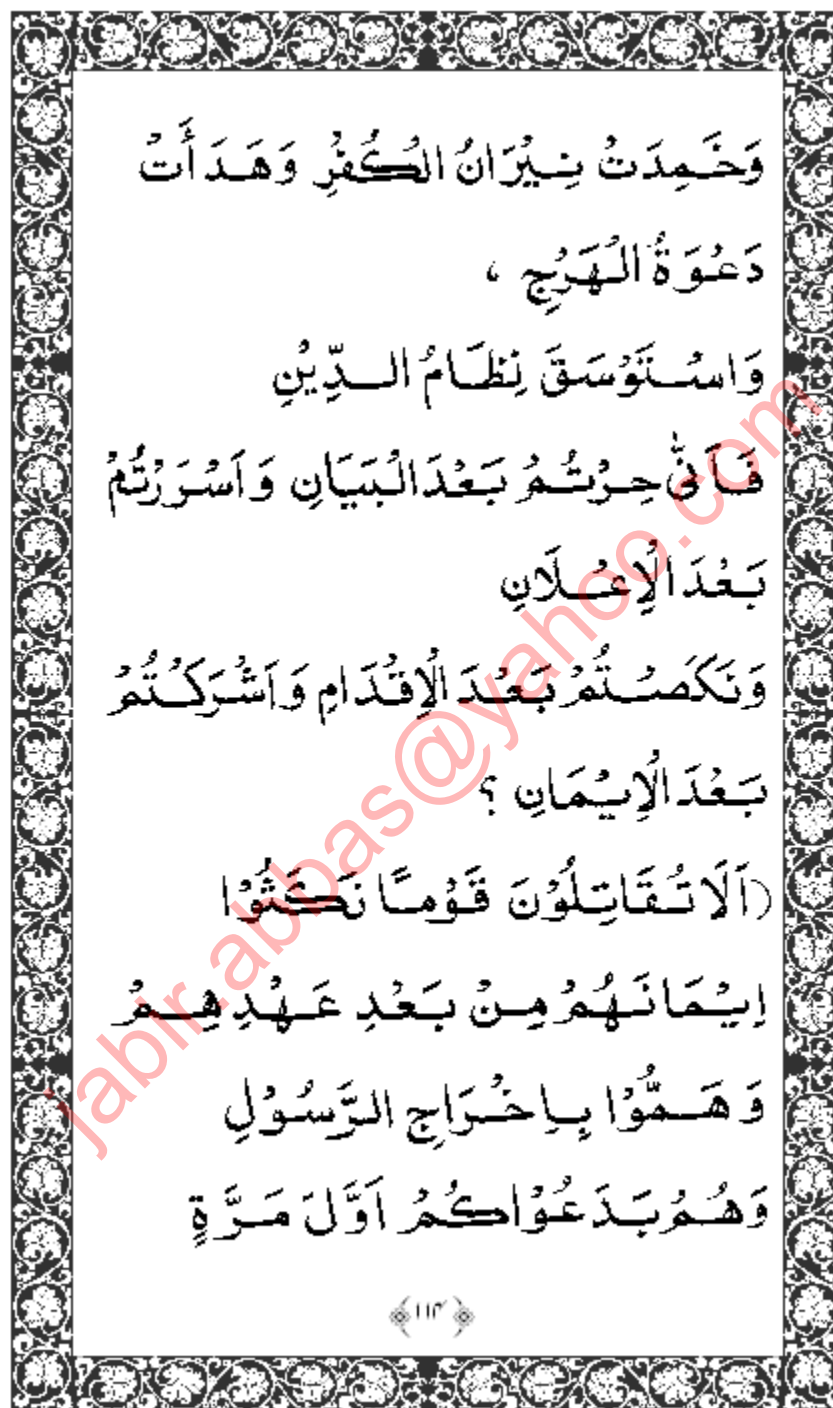 وَخَمِدَتْ نِيْرَانُ الْكُفْرِ وَهَدَأَتْ
دَعْوَةُ الْهَرْجِ ،
وَاسْتَوْسَقَ نِظَامُ الدِّيْنِ
فَاَنّٰى حِزْتُمْ بَعْدَ الْبَيَانِ وَاَسْرَرْتُمْ
بَعْدَ الْاِعْلَانِ
وَنَكَصْتُمْ بَعْدَ الْاِقْدَامِ وَاَشْرَكْتُمْ
بَعْدَ الْاِيْمَانِ ؟
(اَلَا تُقَاتِلُوْنَ قَوْمًا نَكَثُوْا
اِيْمَانَهُمْ مِنْ بَعْدِ عَهْدِهِمْ
وَهَمُّوْا بِاِخْرَاجِ الرَّسُوْلِ
وَهُمْ بَدَءُوْاكُمْ اَوَّلَ مَرَّةٍ
﴿۱۱۴﴾
jabir.abbas@yahoo.com